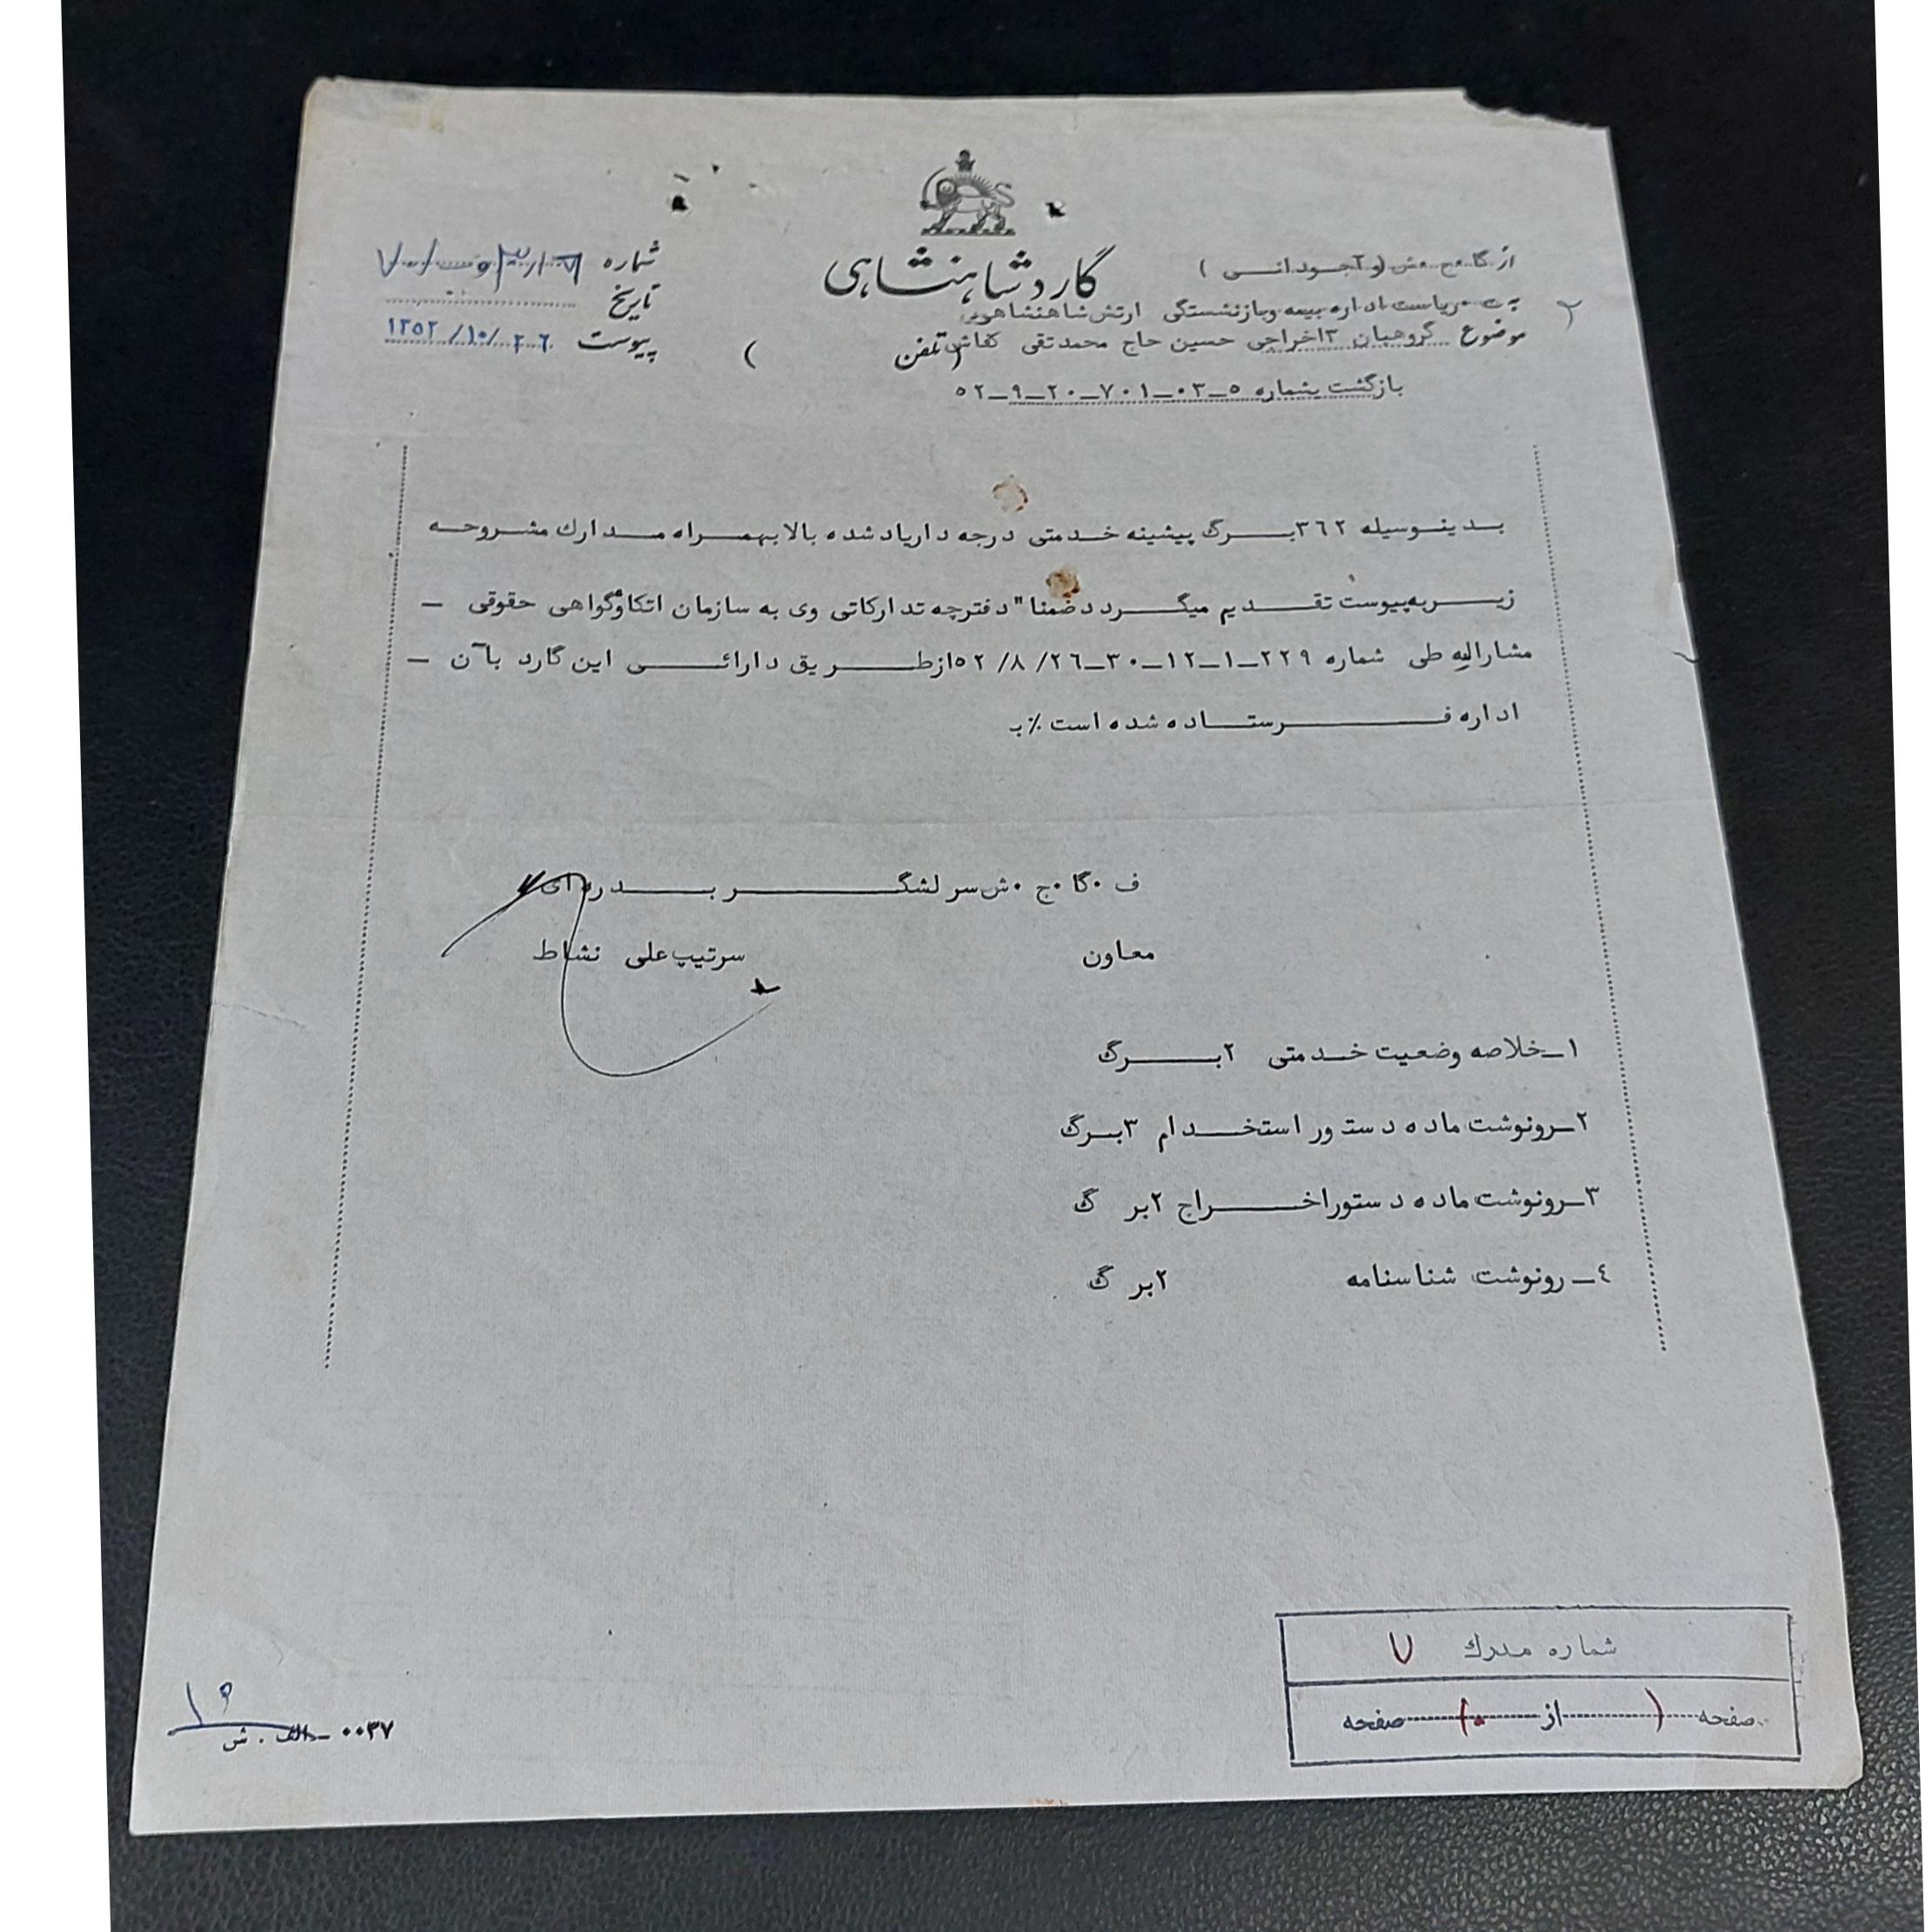 گارد شاهنشاهی
از گا ج ش (و آجودانی)
به ریاست اداره بیمه و بازنشستگی ارتش شاهنشاهی
موضوع گروهبان ۳ اخراجی حسین حاج محمد تقی کفاش (تلفن )
بازگشت بشماره ۵-۰۳-۷۰۱-۲۰-۹-۵۲
شماره
تاریخ
پیوست ۱۳۵۲/۱۰/۲۶
بدینوسیله ۳٦۲ برگ پیشینه خدمتی درجه دار یاد شده بالا بهمراه مدارك مشروحه
زیر به پیوست تقدیم میگردد ضمنا" دفترچه تدارکاتی وی به سازمان اتکا و گواهی حقوقی -
مشارالیه طی شماره ۲۲۹-۱-۱۲-۳۰-۲٦/۸/۵۲ از طریق دارائی این گارد بآن -
اداره فرستاده شده است ٪ ب
ف ۰ گا ۰ ج ۰ ش سرلشگر بدره ای
معاون سرتیپ علی نشاط
۱- خلاصه وضعیت خدمتی ۲ برگ
۲- رونوشت ماده دستور استخدام ۳ برگ
۳- رونوشت ماده دستور اخراج ۲ برگ
٤- رونوشت شناسنامه ۲ برگ
شماره مدرك ۷
صفحه از صفحه
۰۰۳۷ - الف . ش